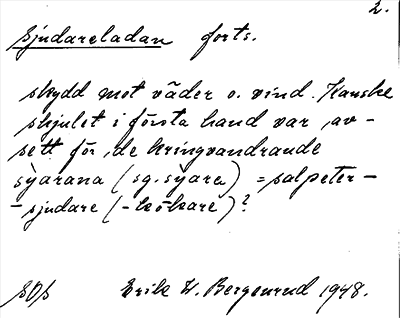 2.
Sjudareladan forts.
skydd mot väder o. vind. Kanske
skjulet i första hand var av-
sett för de kringvandrande
syarana (sg. syare) = salpeter-
-sjudare (-kokare)?
Erik W. Bergenrud 1948.